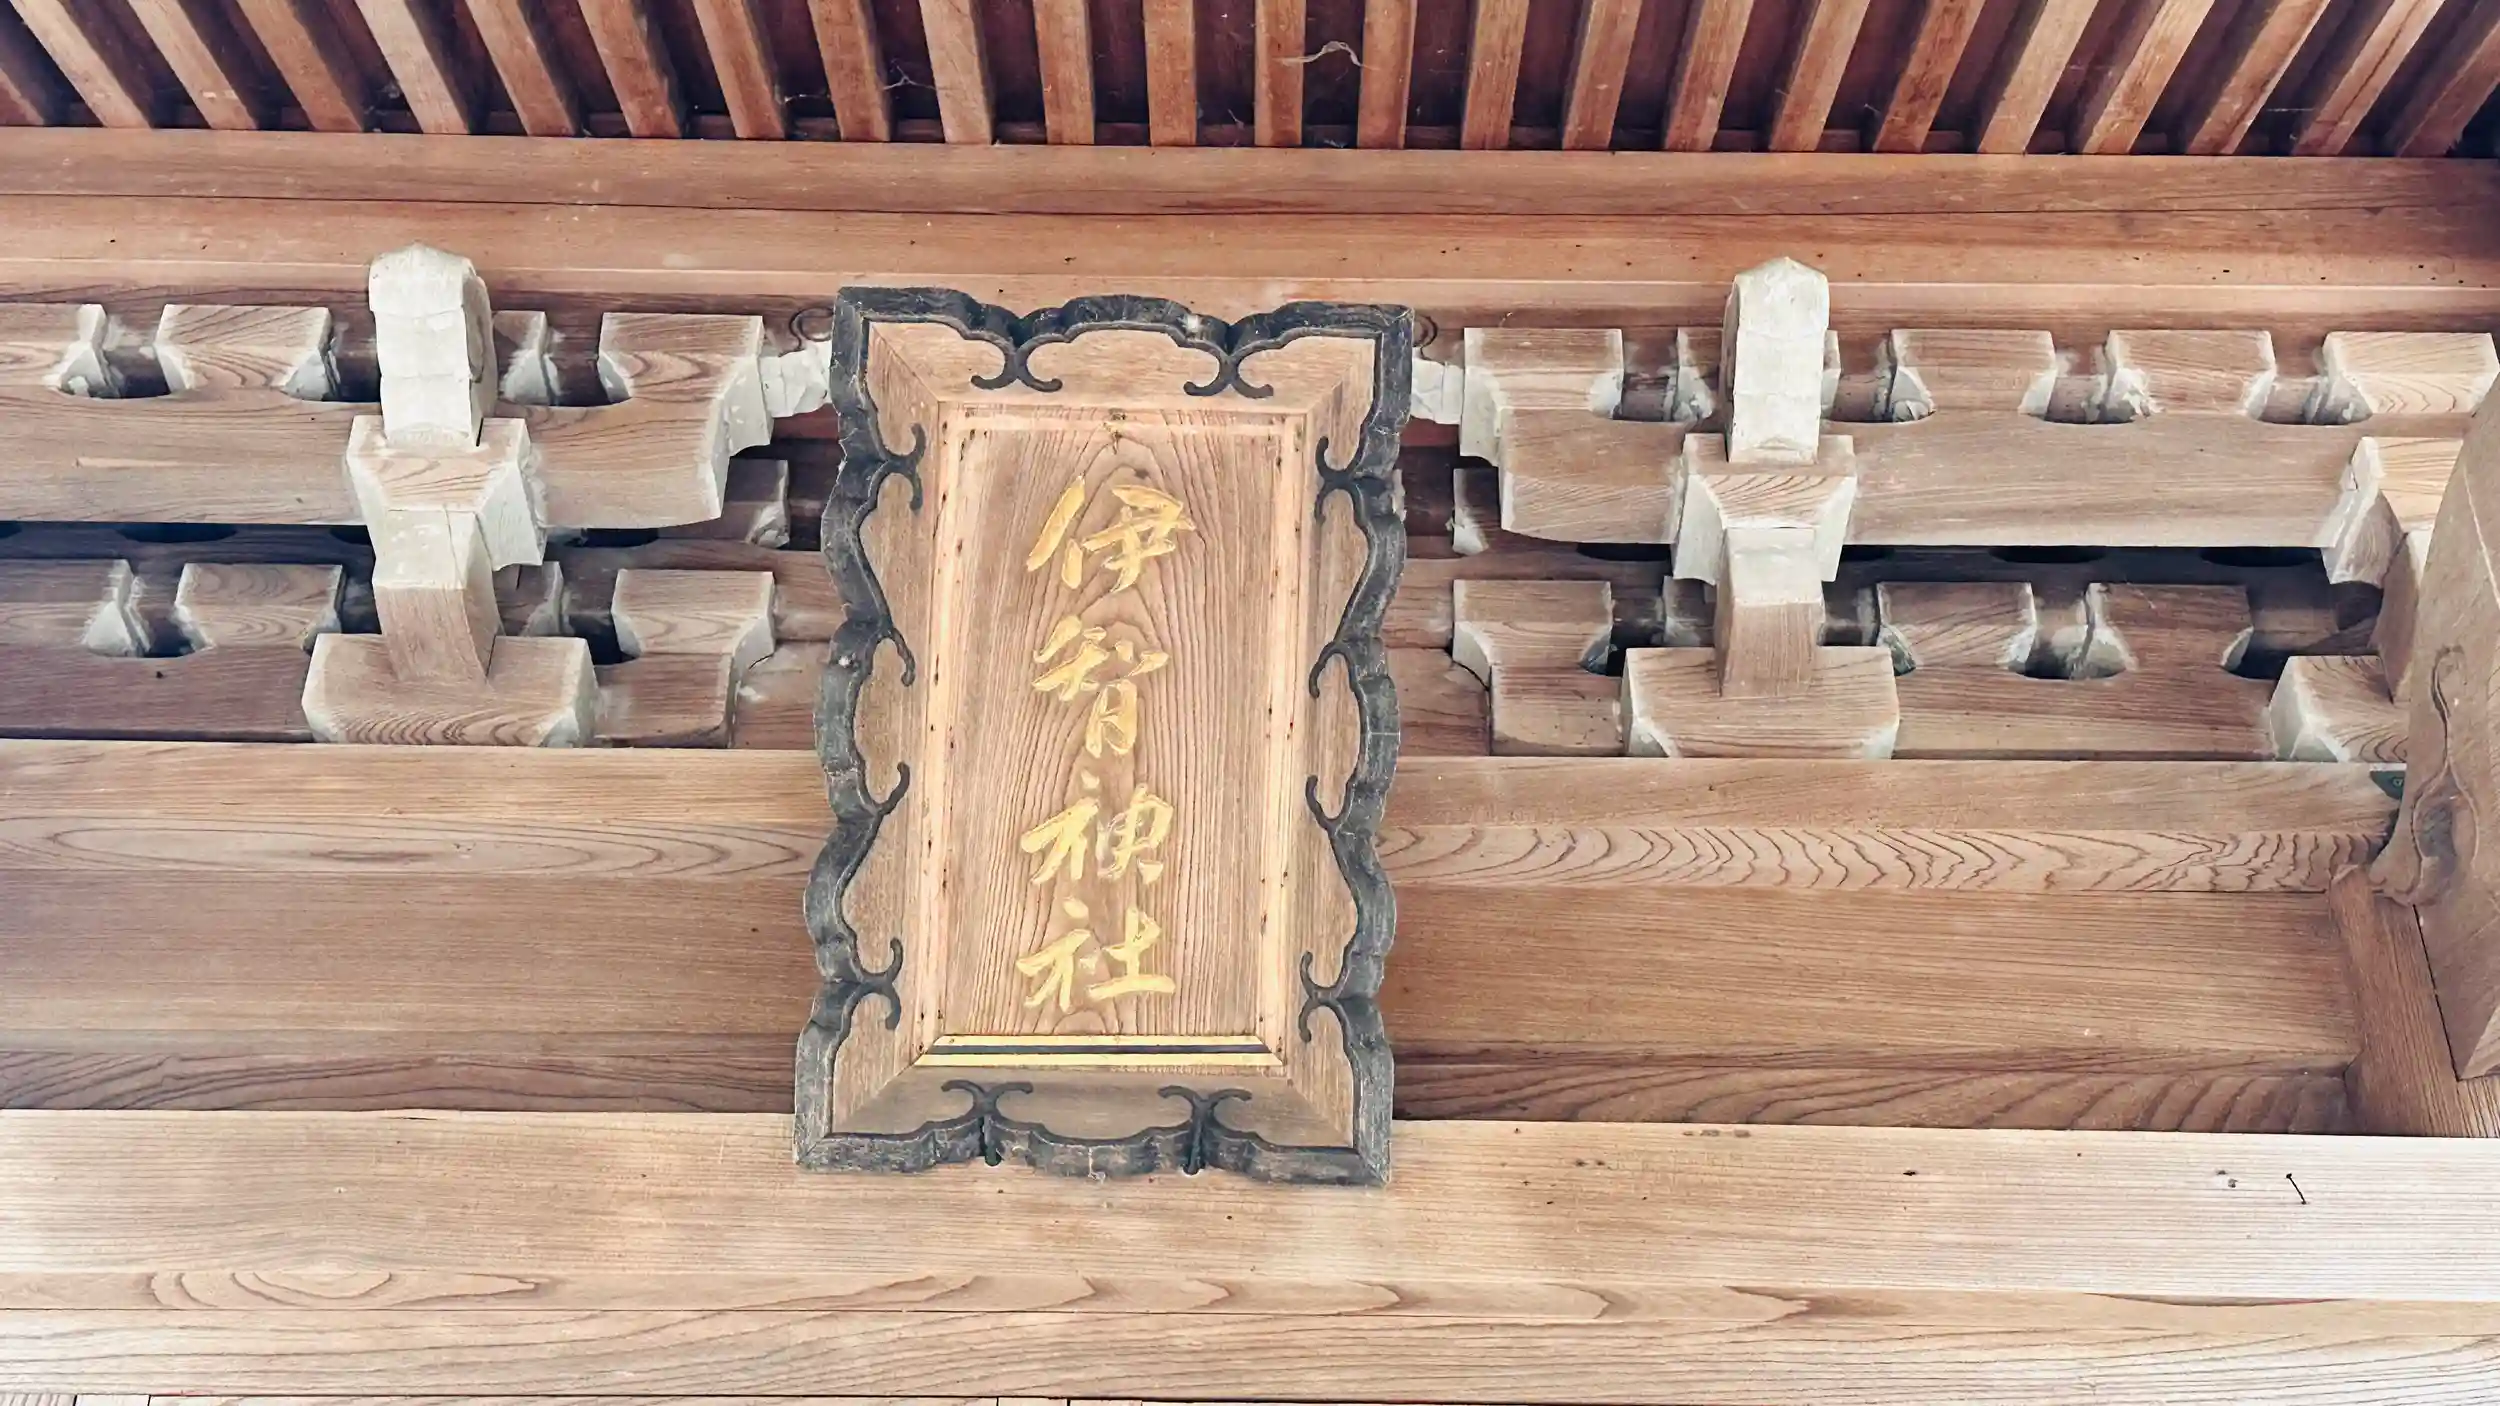 伊智神社